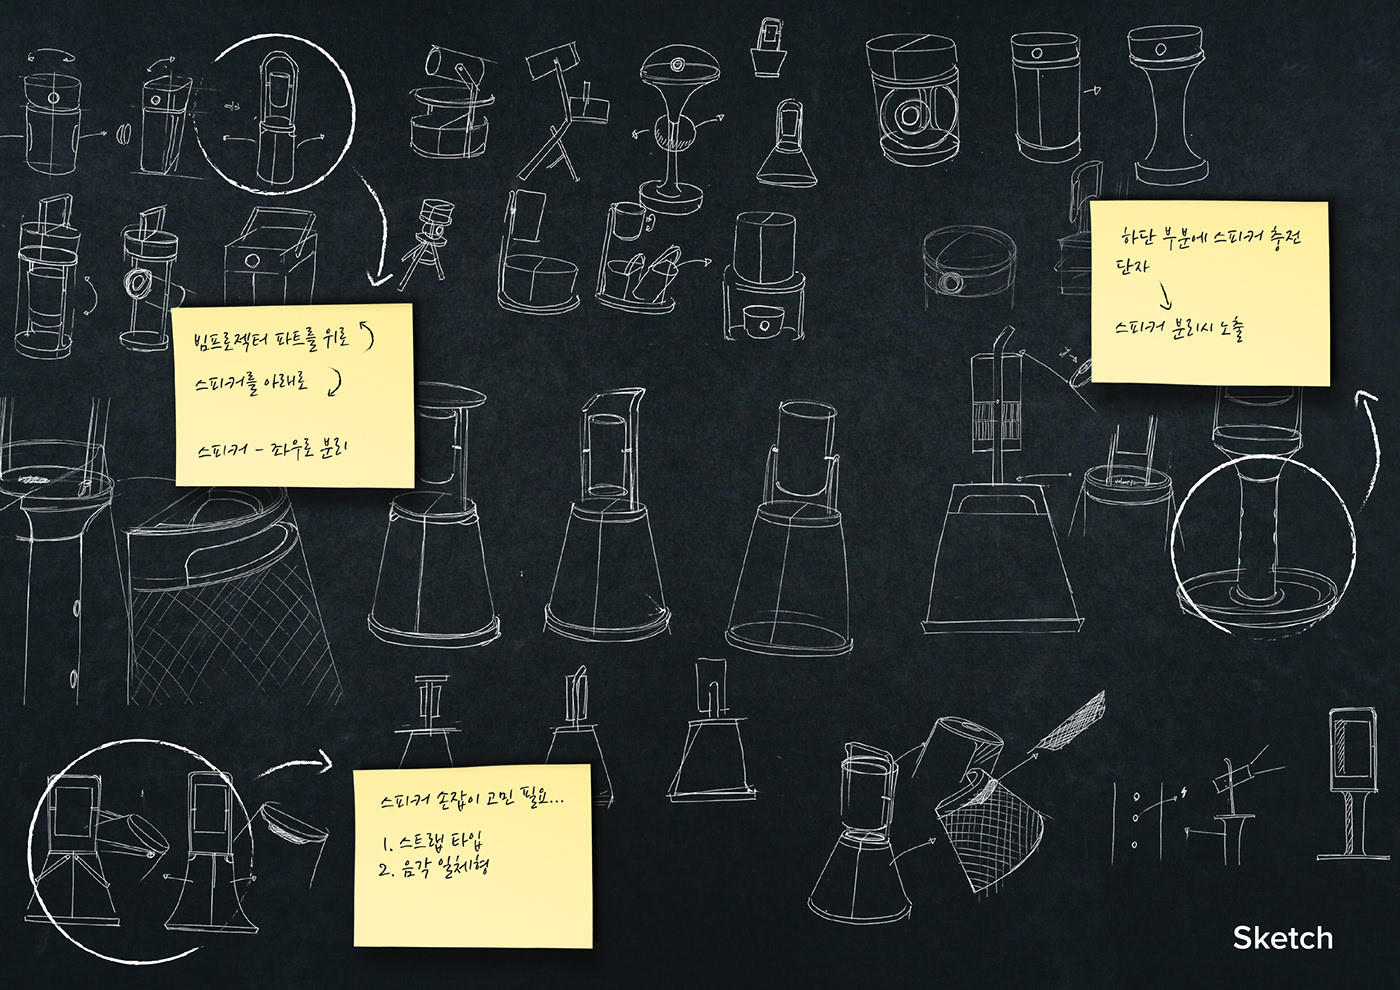 빔프로젝터 파트를 위로
스피커를 아래로
스피커 - 좌우로 분리
하단 부분에 스피커 충전
단자
스피커 분리시 노출
스피커 손잡이 고민 필요...
1. 스트랩 타입
2. 음각 일체형
Sketch